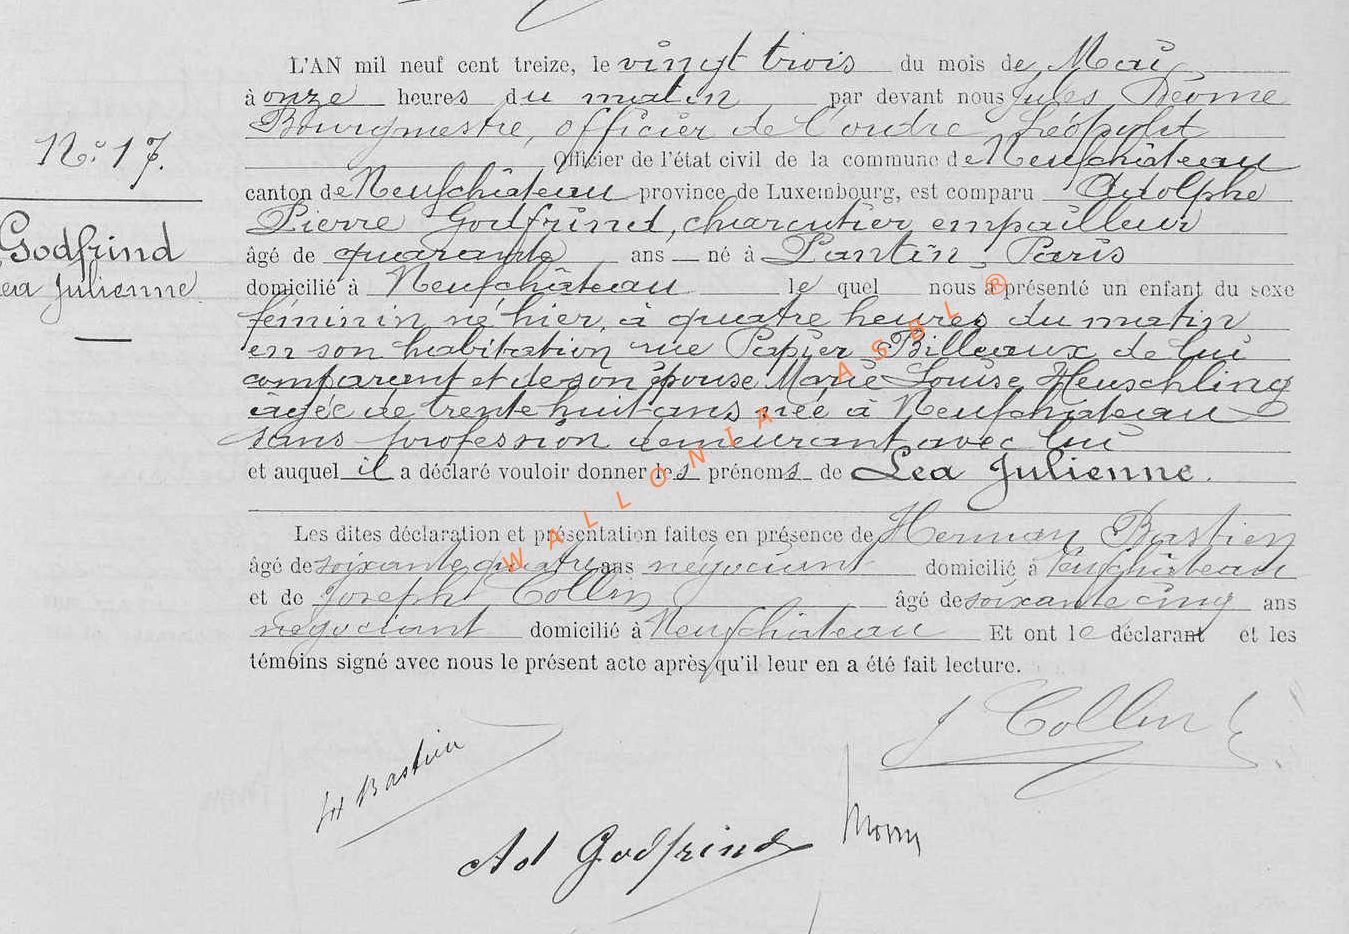 L'AN mil neuf cent treize, le vingt trois du mois de Mai
à onze heures du matin par devant nous Jules
Bourgmestre, officier de l'ordre Léopold
N° 17.
Officier de l'état civil de la commune de Neufchâteau
canton de Neufchâteau province de Luxembourg, est comparu Adolphe
Pierre Godfrind, charcutier empailleur
Godfrind
âgé de quarante ans né à Pantin - Paris
Léa Julienne
domicilié à Neufchâteau le quel nous a présenté un enfant du sexe
féminin né hier, à quatre heures du matin
en son habitation rue Papier Billeaux de lui
comparant et de son épouse Marie Louise Heuschling
âgée de trente huit ans née à Neufchâteau
sans profession demeurant avec lui
et auquel il a déclaré vouloir donner les prénoms de Léa Julienne.
Les dites déclaration et présentation faites en présence de Herman Bastien
âgé de soixante quatre ans négociant domicilié à Neufchâteau
et de Joseph Collin âgé de soixante cinq ans
négociant domicilié à Neufchâteau Et ont le déclarant et les
témoins signé avec nous le présent acte après qu'il leur en a été fait lecture.
J Collin
H Bastien
Ad Godfrind
WALLONIA ASBL ®